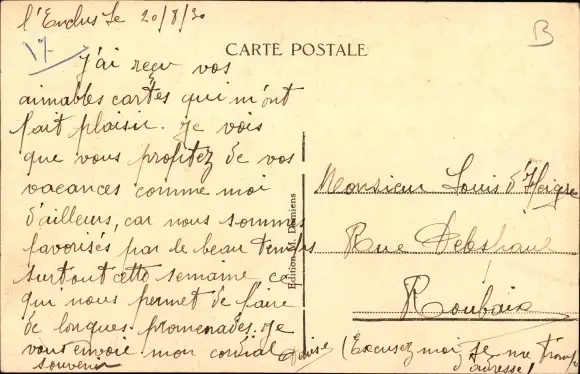 l'Enclus le 20/8/30
17
B
CARTE POSTALE
J'ai reçu vos
aimables cartes qui m'ont
fait plaisir. Je vois
que vous profitez de vos
vacances comme moi
d'ailleurs, car nous sommes
favorisés par le beau temps
surtout cette semaine, ce
qui nous permet de faire
de longues promenades. Je
vous envoie mon cordial
souvenir
Edition M. Damiens
Monsieur Louis d'Heigre
Rue
Roubaix
(Excusez moi je me trompe
adresse!